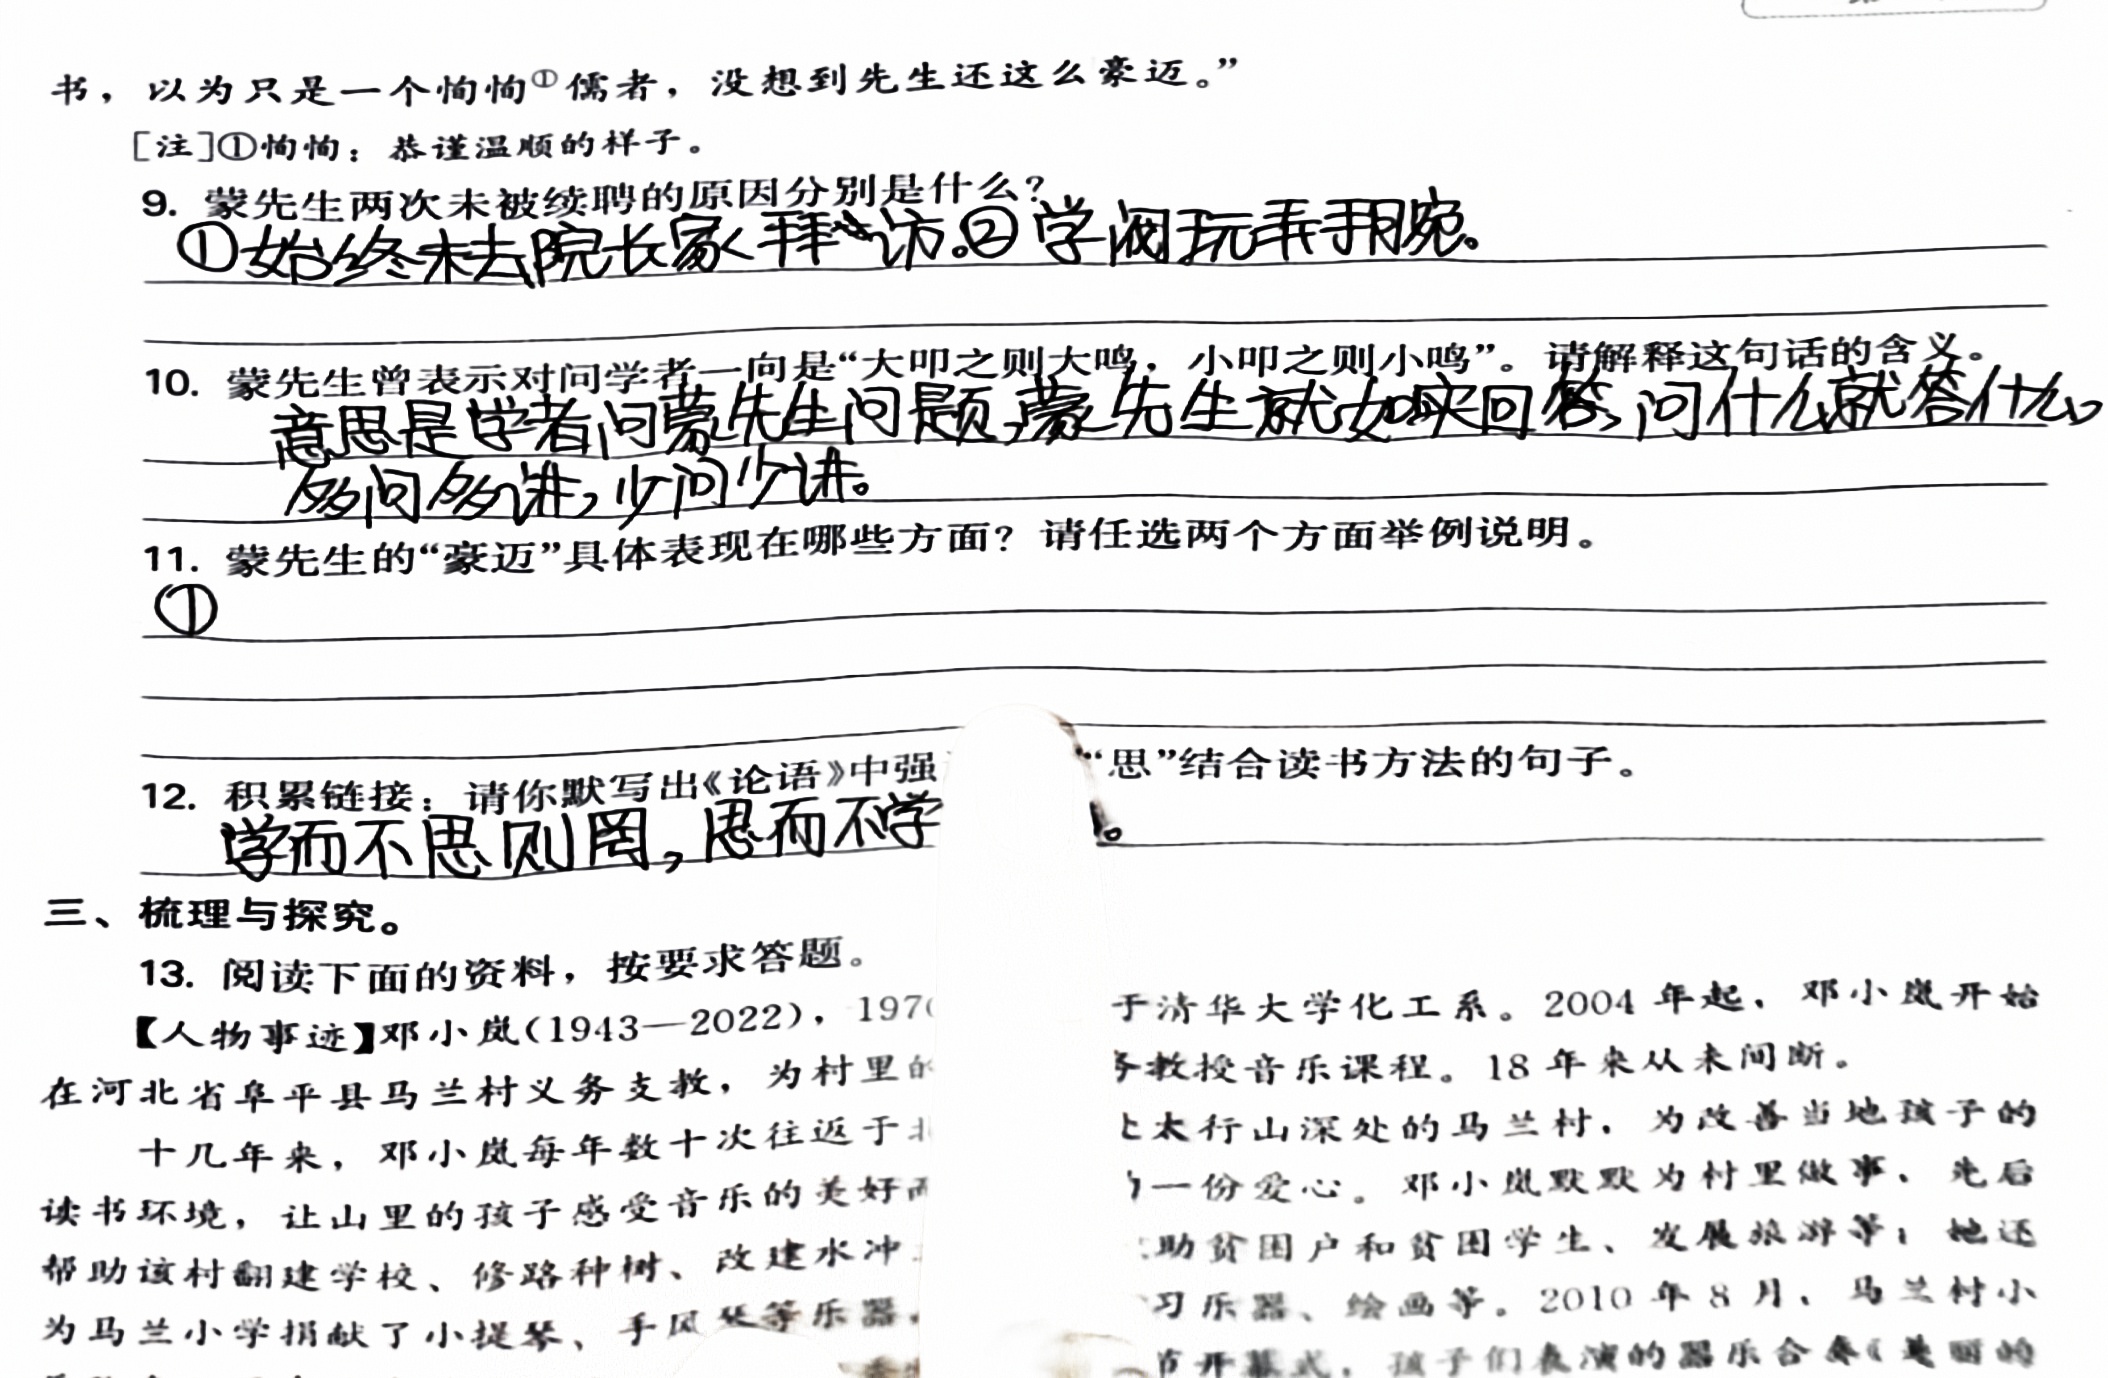 书，以为只是一个恂恂①儒者，没想到先生还这么豪迈。”
[注]①恂恂：恭谨温顺的样子。
9. 蒙先生两次未被续聘的原因分别是什么？
①始终未去院长家拜访。②学阀玩弄手腕。
10. 蒙先生曾表示对问学者一向是“大叩之则大鸣，小叩之则小鸣”。请解释这句话的含义。
意思是学者问蒙先生问题，蒙先生就如实回答，问什么就答什么。
多问多讲，少问少讲。
11. 蒙先生的“豪迈”具体表现在哪些方面？请任选两个方面举例说明。
①
12. 积累链接：请你默写出《论语》中强 “思”结合读书方法的句子。
学而不思则罔，思而不学 。
三、梳理与探究。
13. 阅读下面的资料，按要求答题。
【人物事迹】邓小岚(1943—2022)，197 于清华大学化工系。2004 年起，邓小岚开始
在河北省阜平县马兰村义务支教，为村里的 教授音乐课程。18 年来从未间断。
十几年来，邓小岚每年数十次往返于 太行山深处的马兰村，为改善当地孩子的
读书环境，让山里的孩子感受音乐的美好 一份爱心。邓小岚默默为村里做事，先后
帮助该村翻建学校、修路种树、改建水冲 助贫困户和贫困学生、发展旅游等；她还
为马兰小学捐献了小提琴、手风琴等乐器， 习乐器、绘画等。2010 年 8 月，马兰村小
节开幕式，孩子们表演的器乐合奏《美丽的